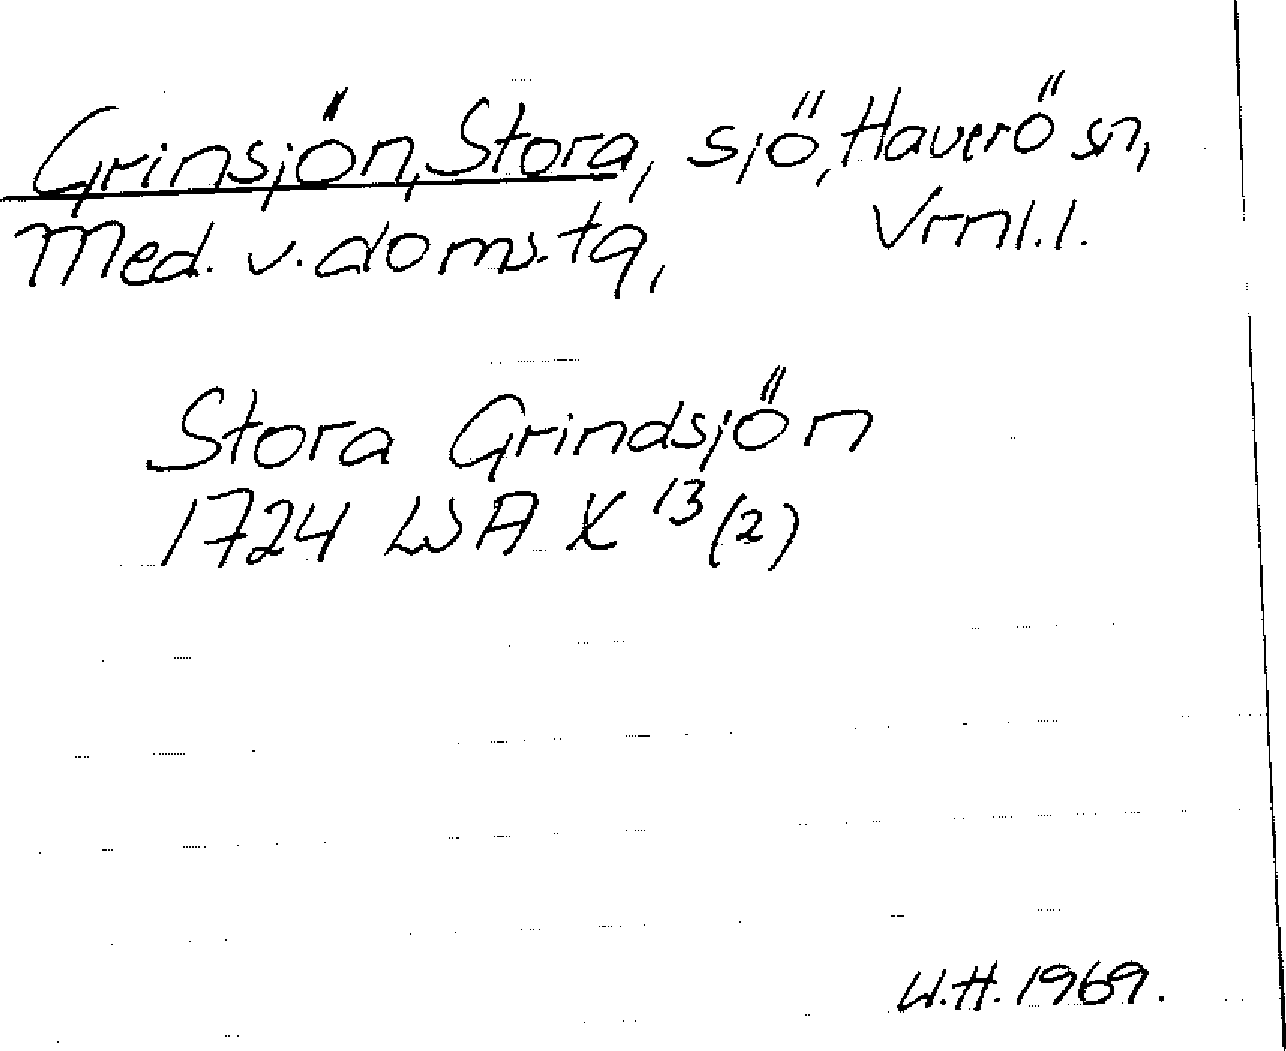 Grinsjön, Stora, sjö, Haverö sn,
Med. v. doms. tg, Vrnl. l.
Stora Grindsjön
1724 LSA X 13 (2)
U.H. 1969.